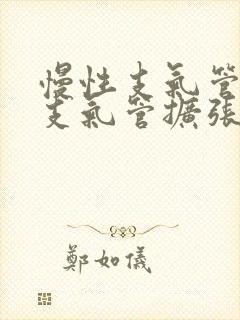 慢性支氣管
支氣管擴張
鄭如儀